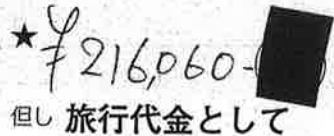 ★¥216,060-
但し 旅行代金として